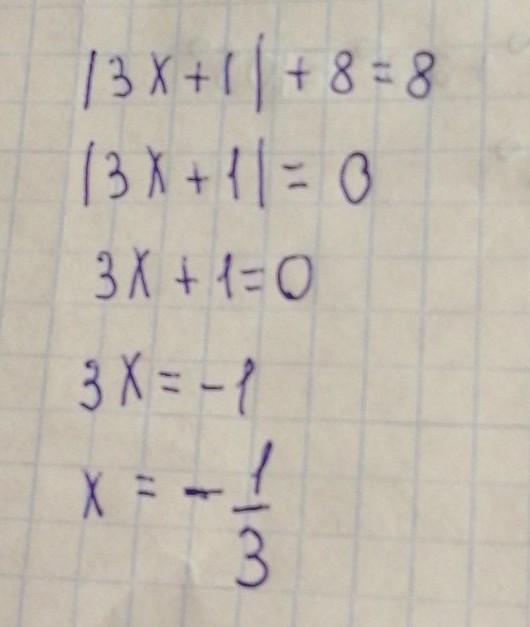 |3x+1|+8=8
|3x+1|=0
3x+1=0
3x=-1
x=-1/3